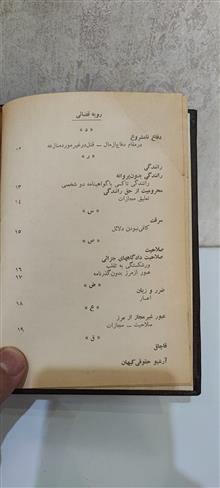 رویه قضائی
« د »
دفاع نامشروع
در مقام دفاع از مال – قتل در غیر مورد منازعه ۱۲
« ر »
رانندگی
رانندگی بدون پروانه
رانندگی تاکسی با گواهینامه دو شخصی ۱۳
محرومیت از حق رانندگی
تعلیق مجازات ۱۴
« س »
سرقت
کافی نبودن دلائل ۱۵
« ص »
صلاحیت
صلاحیت دادگاههای جزائی
ورشکستگی به تقلب ۱۶
عبور از مرز بدون گذرنامه ۱۷
« ض »
ضرر و زیان
اعسار ۱۸
« ع »
عبور غیر مجاز از مرز
صلاحیت – مجازات ۱۹
« ق »
قاچاق
آرشیو حقوقی کیهان